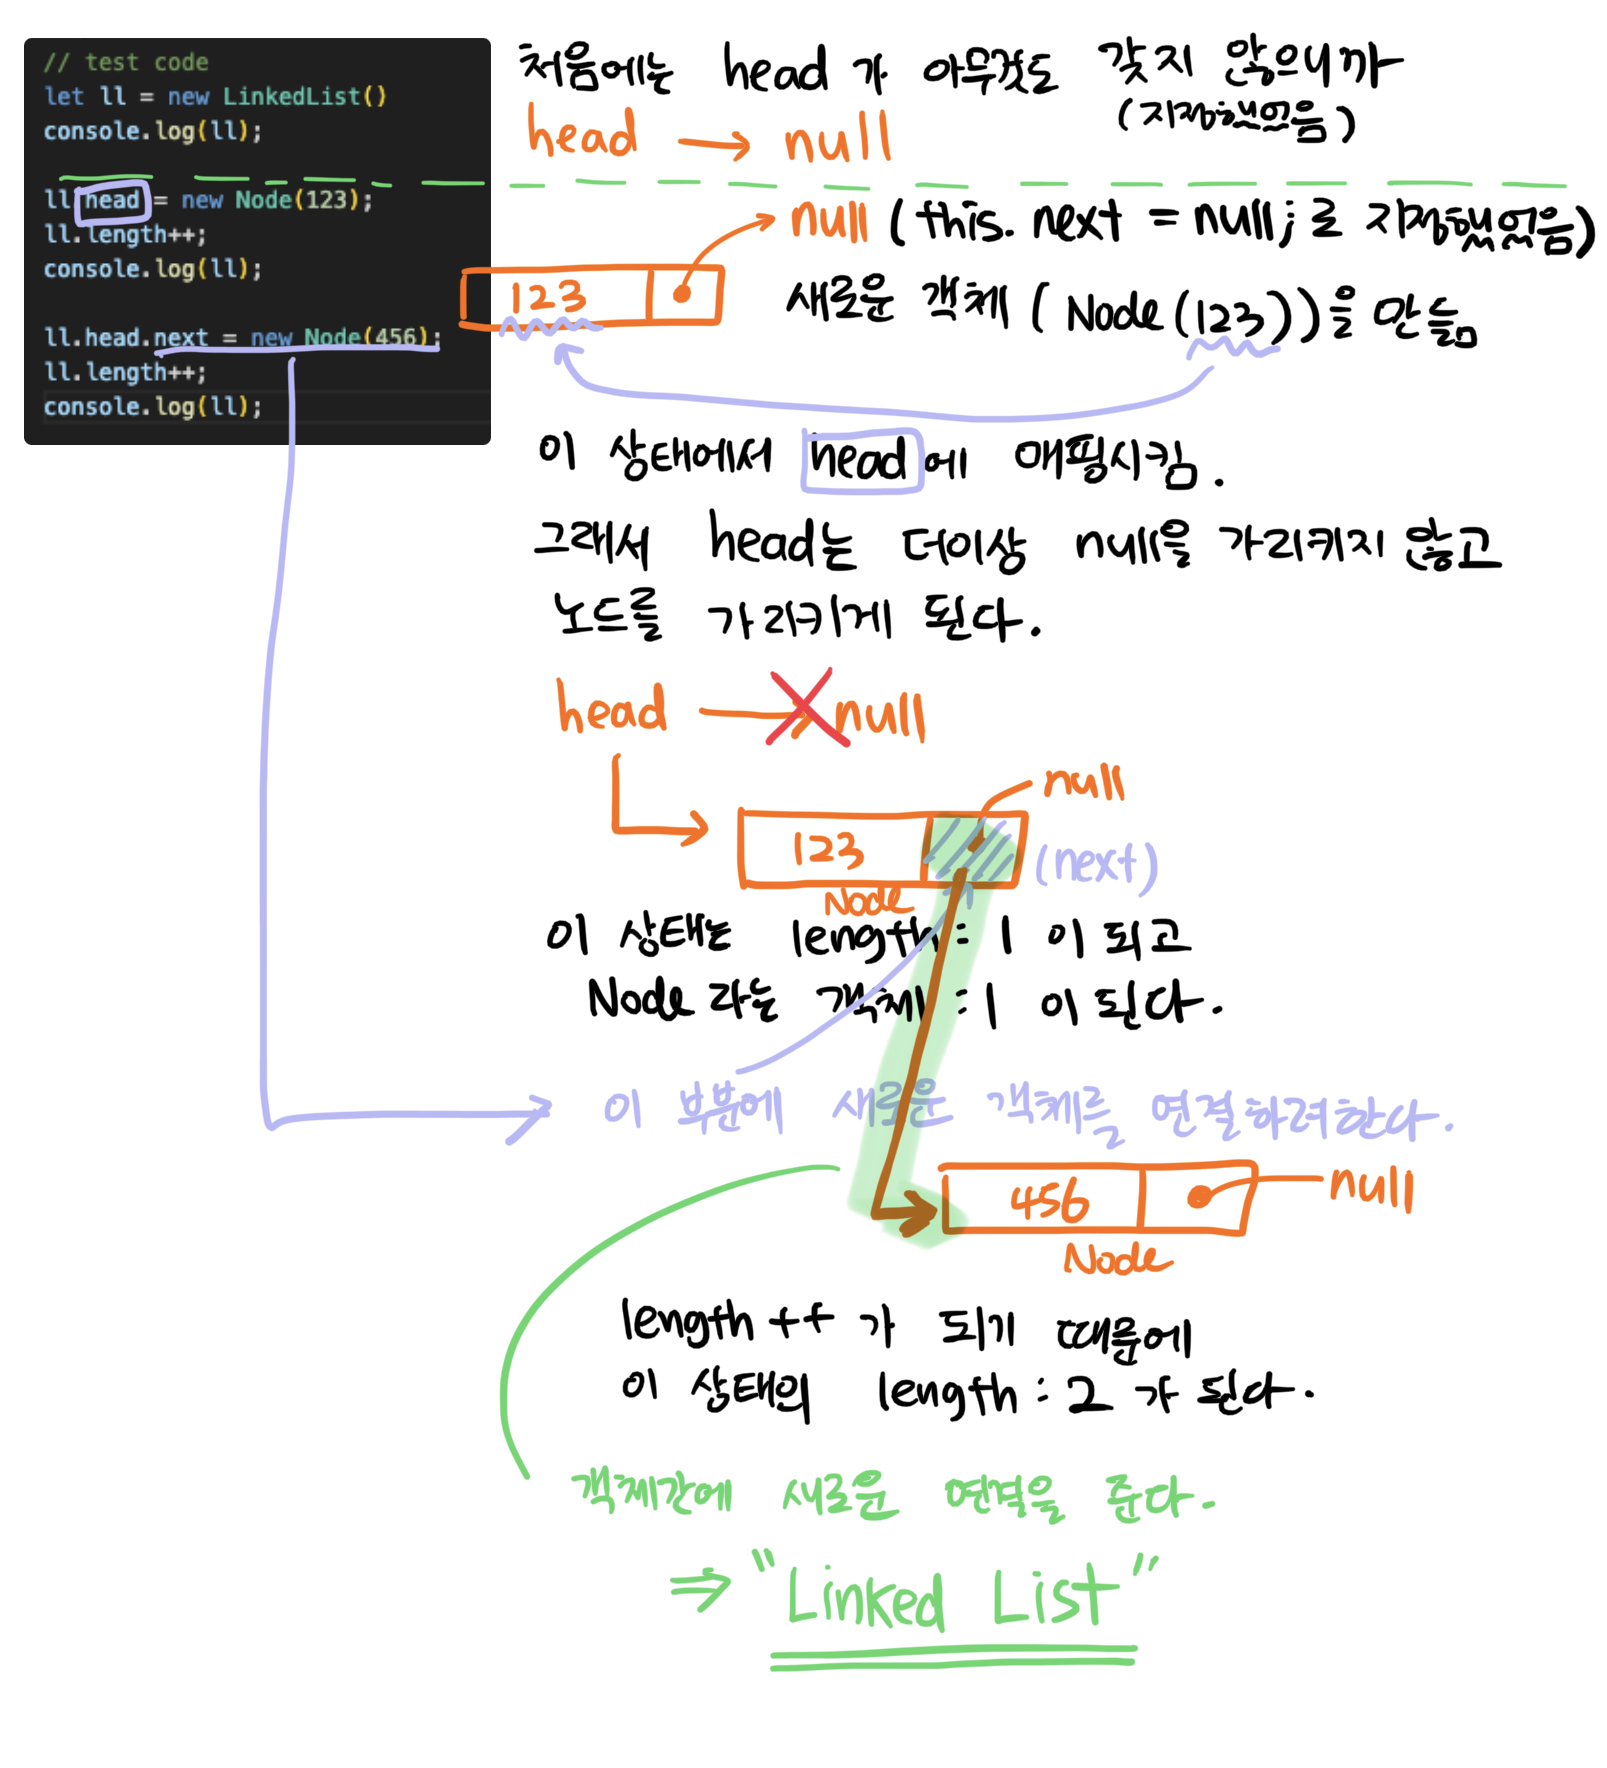 // test code
let ll = new LinkedList()
console.log(ll);
ll.head = new Node(123);
ll.length++;
console.log(ll);
ll.head.next = new Node(456);
ll.length++;
console.log(ll);
처음에는 head가 아무것도 갖지 않으니까
(지정했었음)
head → null
null (this.next = null;로 지정했었음)
123
새로운 객체 (Node(123))을 만듦
이 상태에서 head에 매핑시킴.
그래서 head는 더이상 null을 가리키지 않고
노드를 가리키게 된다.
head → null
null
123
(next)
Node
이 상태는 length : 1 이 되고
Node 라는 객체 : 1 이 된다.
이 부분에 새로운 객체를 연결하려한다.
456
null
Node
length ++ 가 되기 때문에
이 상태의 length : 2 가 된다.
객체간에 새로운 연결을 준다.
⇒ "Linked List"